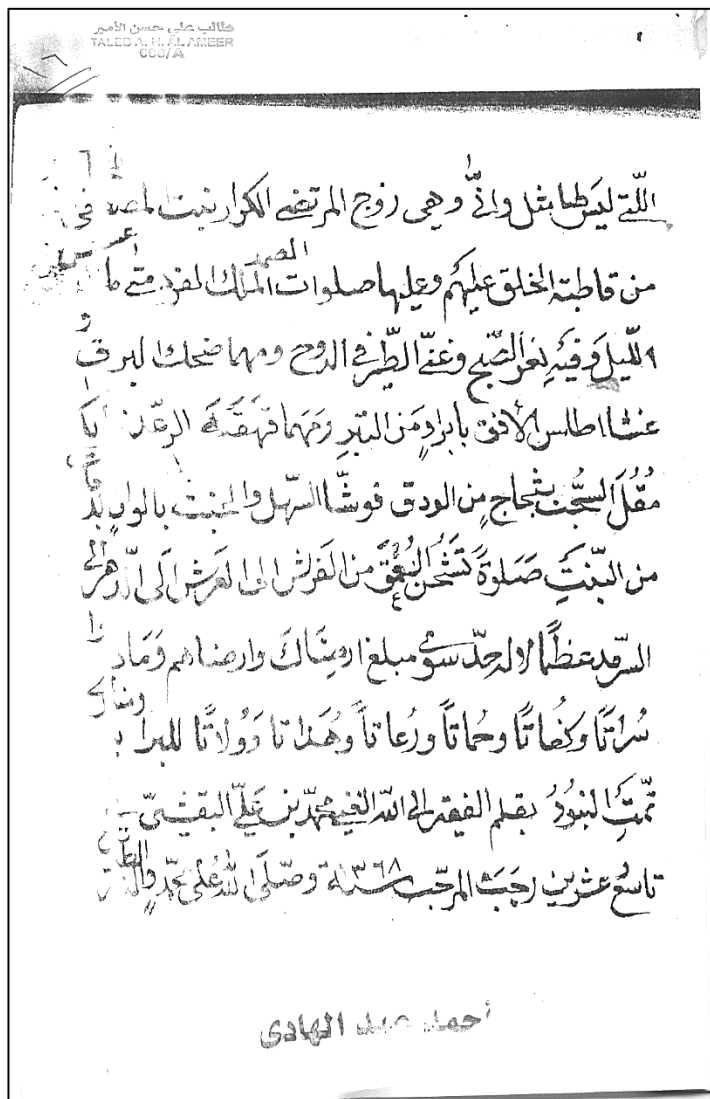 طالب علي حسن الأمير
TALEB A. H. AL AMEER
698/A
اللتي ليس لها مثل وإنّي وهي زوج المرتضى الكرار بنت المصطفى
من قاطبة الخلق عليهم وعليها صلوات الملك الفرد الصمد متى ما
الليل وفيه ثغر الصّبح وغنّى الطّير في الدوح ومهما ضحك البرق و
غشا اطلس الأفق بابرادٍ من التبر ومهما قهقه الرعد
مُقُلَ السُّحُبِ بثجاجٍ من الودق فوشّا السّهل والخبت بالوان
من النّبتِ صَلوةً تَشحَن العُمقَ من الفرش الى العرش الى الدّهر الى
السّرمد عظمًا لا له حدّ سوى مبلغ ارضاك وارضاهم وماد
سُراتًا وكفُاتًا وحُماتاً ورُعاتاً وهُداتا ووُلاتًا للبرايا
تمّت البنودُ بقلم الفقير الى الله الغني محمّد بن عليّ البقشيّ
تاسع عشر من رجب المرجّب سنة ١٣٦٨ وصلّى الله على محمّدٍ واله
أحمد عبد الهادي